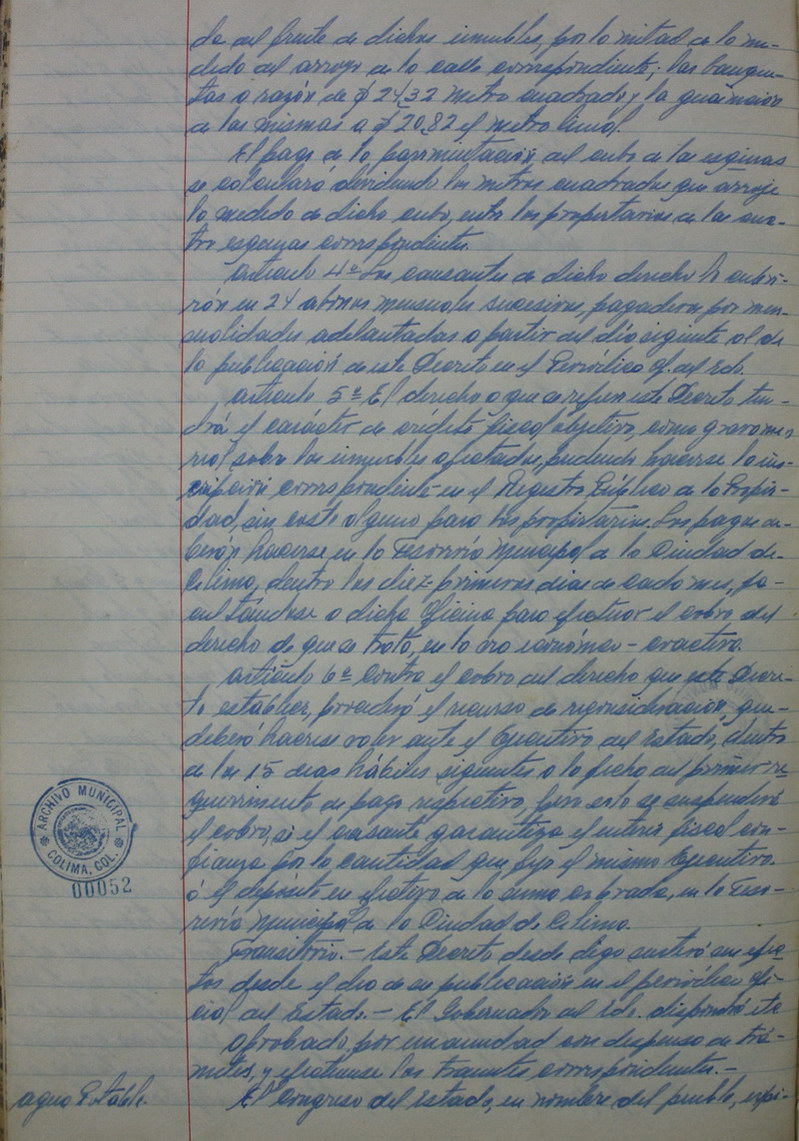 da del frente de dichos inmuebles, por la mitad de la me-
dida del arroyo de la calle correspondiente; las banque-
tas a razón de $ 24.32 metro cuadrado y la guarnición
de las mismas a $ 20.82 el metro lineal.
El pago de la pavimentación del cubo de las esquinas
se calculará dividiendo los metros cuadrados que arroje
la medida de dicho cubo, entre los propietarios de las cua-
tro esquinas correspondientes.
Artículo 4º Los causantes de dicho derecho lo cubri-
rán en 24 abonos mensuales sucesivos, pagaderos por men-
sualidades adelantadas a partir del día siguiente al de
la publicación de este Decreto en el Periódico Of. del Edo.
Artículo 5º El derecho a que se refiere este Decreto ten-
drá el carácter de crédito fiscal objetivo, como gravamen
real sobre los inmuebles afectados, pudiendo hacerse la ins-
cripción correspondiente en el Registro Público de la Propie-
dad, sin costo alguno para los propietarios. Los pagos de-
berán hacerse en la Tesorería Municipal de la Ciudad de
Colima, dentro los diez primeros días de cada mes, fa-
cultándose a dicha Oficina para efectuar el cobro del
derecho de que se trata, en la vía económico-coactiva.
Artículo 6º Contra el cobro del derecho que este Decre-
to establece, procederá el recurso de reconsideración, que
deberá hacerse valer ante el Ejecutivo del Estado, dentro
de los 15 días hábiles siguientes a la fecha del primer re-
querimiento de pago respectivo, pero esto se suspenderá
el cobro, si el causante garantiza el interés fiscal con
fianza por la cantidad que fije el mismo Ejecutivo.
ó el depósito en efectivo de la suma cobrada, en la Teso-
rería Municipal de la Ciudad de Colima.
Transitorio.- Este Decreto desde digo surtirá sus efec-
tos desde el día de su publicación en el periódico ofi-
cial del Estado.- El Gobernador del Edo. dispondrá etc
Aprobado por unanimidad con dispensa de trá-
mites, y efectúense los tramites correspondientes.-
Agua Potable.
El Congreso del Estado, en nombre del pueblo, expi-
ARCHIVO MUNICIPAL
COLIMA, COL.
00052